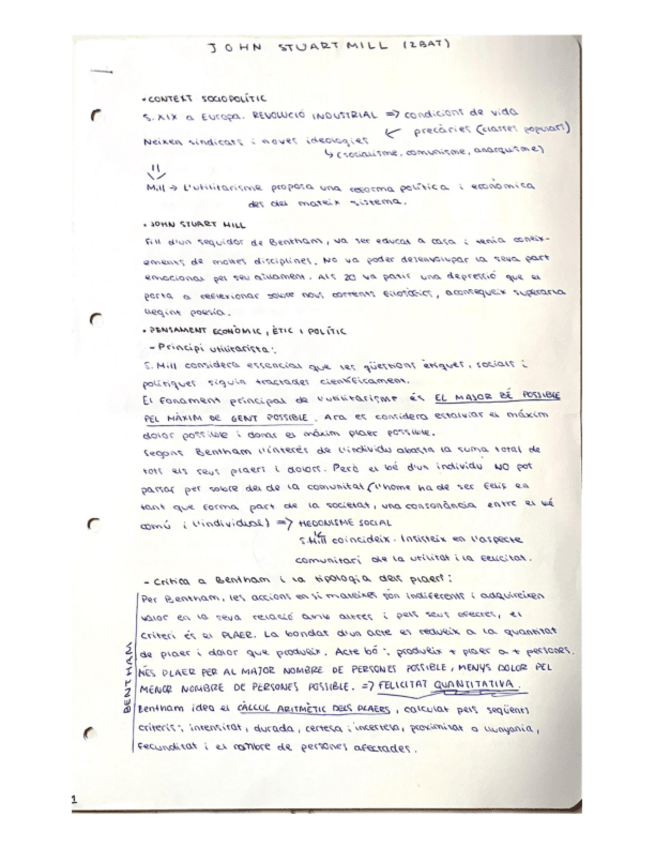 JOHN STUART MILL (2BAT)
• CONTEXT SOCIOPOLÍTIC
S. XIX a Europa. REVOLUCIÓ INDUSTRIAL => condicions de vida
precàries (classes populars)
Neixen sindicats i noves ideologies
↳ (socialisme, comunisme, anarquisme)
Mill → L'utilitarisme proposa una reforma política i econòmica
des del mateix sistema.
• JOHN STUART MILL
Fill d'un seguidor de Bentham, va ser educat a casa i tenia coneix-
ements de moltes disciplines. No va poder desenvolupar la seva part
emocional pel seu aïllament. Als 20 va patir una depressió que el
porta a reflexionar sobre nous corrents filosòfics, aconsegueix superarla
llegint poesia.
• PENSAMENT ECONÒMIC, ÈTIC I POLÍTIC
- Principi utilitarista:
S. Mill considera essencial que les qüestions ètiques, socials i
polítiques siguin tractades científicament.
El fonament principal de l'utilitarisme és EL MAJOR BÉ POSSIBLE
PEL MÀXIM DE GENT POSSIBLE. Ara es considera estalviar el màxim
dolor possible i donar el màxim plaer possible.
Segons Bentham l'interès de l'individu abasta la suma total de
tots els seus plaers i dolors. Però el bé d'un individu NO pot
passar per sobre del de la comunitat (l'home ha de ser feliç en
tant que forma part de la societat, una consonància entre el bé
comú i l'individual) => HEDONISME SOCIAL
S. Mill coincideix. Insisteix en l'aspecte
comunitari de la utilitat i la felicitat.
- Crítica a Bentham i la tipologia dels plaers:
BENTHAM
Per Bentham, les accions en si mateixes són indiferents i adquireixen
valor en la seva relació amb altres i pels seus efectes, el
criteri és el PLAER. La bondat d'un acte es redueix a la quantitat
de plaer i dolor que produeix. Acte bó: produeix + plaer a + persones.
MÉS PLAER PER AL MAJOR NOMBRE DE PERSONES POSSIBLE, MENYS DOLOR PEL
MENOR NOMBRE DE PERSONES POSSIBLE. => FELICITAT QUANTITATIVA.
Bentham idea el CÀLCUL ARITMÈTIC DELS PLAERS, calculat pels següents
criteris: intensitat, durada, certesa i incertesa, proximitat o llunyania,
fecunditat i el nombre de persones afectades.
1